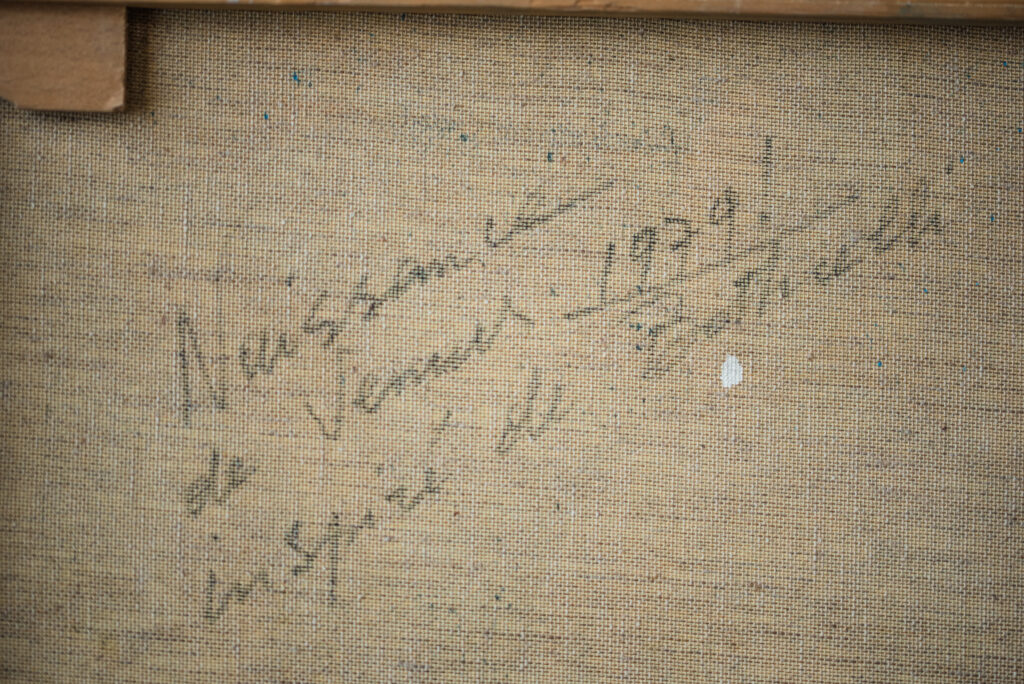 Naissance
de Venus - 1979!
inspiré de Botticelli